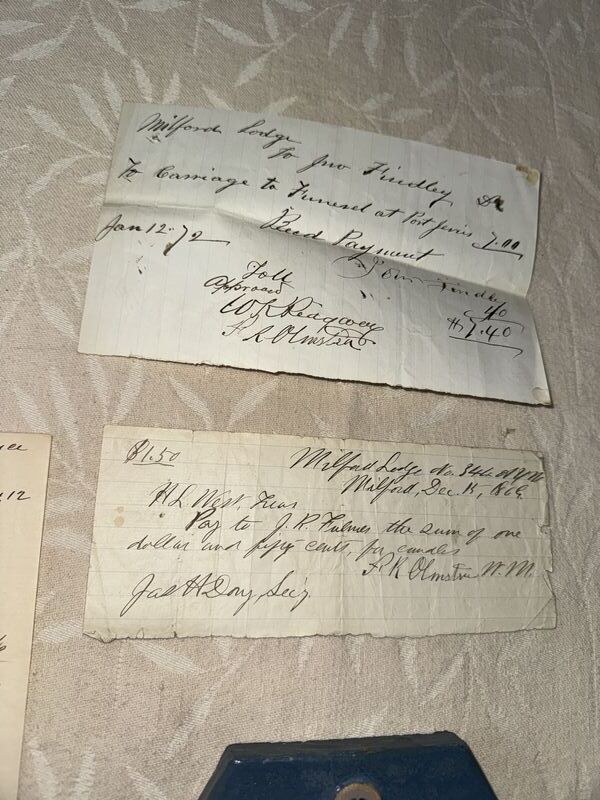 Milford Lodge
To Jno Findley Dr
To Carriage to Funeral at Port Jervis 7.00
Jan 12. 72 Recd Payment
John Findley
Toll 40
Approved $7.40
W K Ridgway
P. K Olmsted
12
$1.50
Milford Lodge No. 344
Milford, Dec. 13, 1869.
H L West, Treas
Pay to J. R. Fulmer the sum of one
dollar and fifty cents, for candles
P K Olmsted W. M.
Jas H Dony, Sec'y.